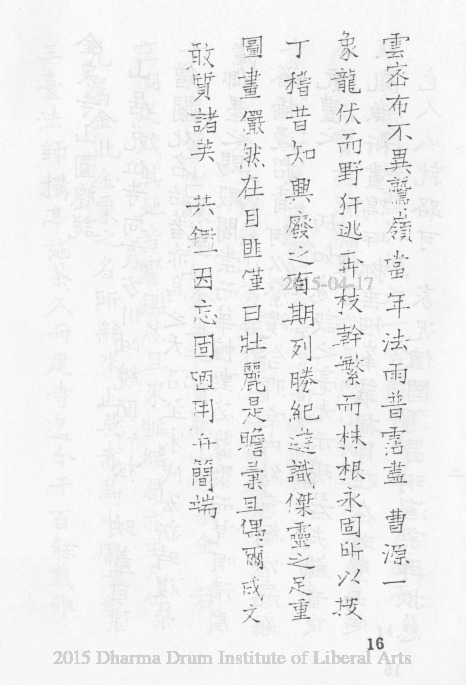 雲密布不異鷲嶺當年法雨普霑蓋曹源一
象龍伏而野犴逃奔枝幹繁而株根永固所以按
丁稽昔知興廢之有期列勝紀達識傑靈之足重
圖畫儼然在目匪僅曰壯麗是瞻彙且偶爾成文
敢質諸 共鑑因忘固陋用弁簡端
2015-04-17
16
2015 Dharma Drum Institute of Liberal Arts